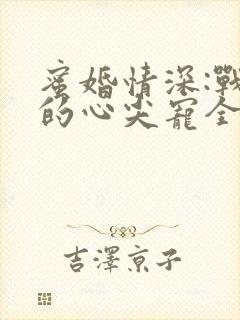 蜜婚情深:戰
的心尖寵全
吉澤京子